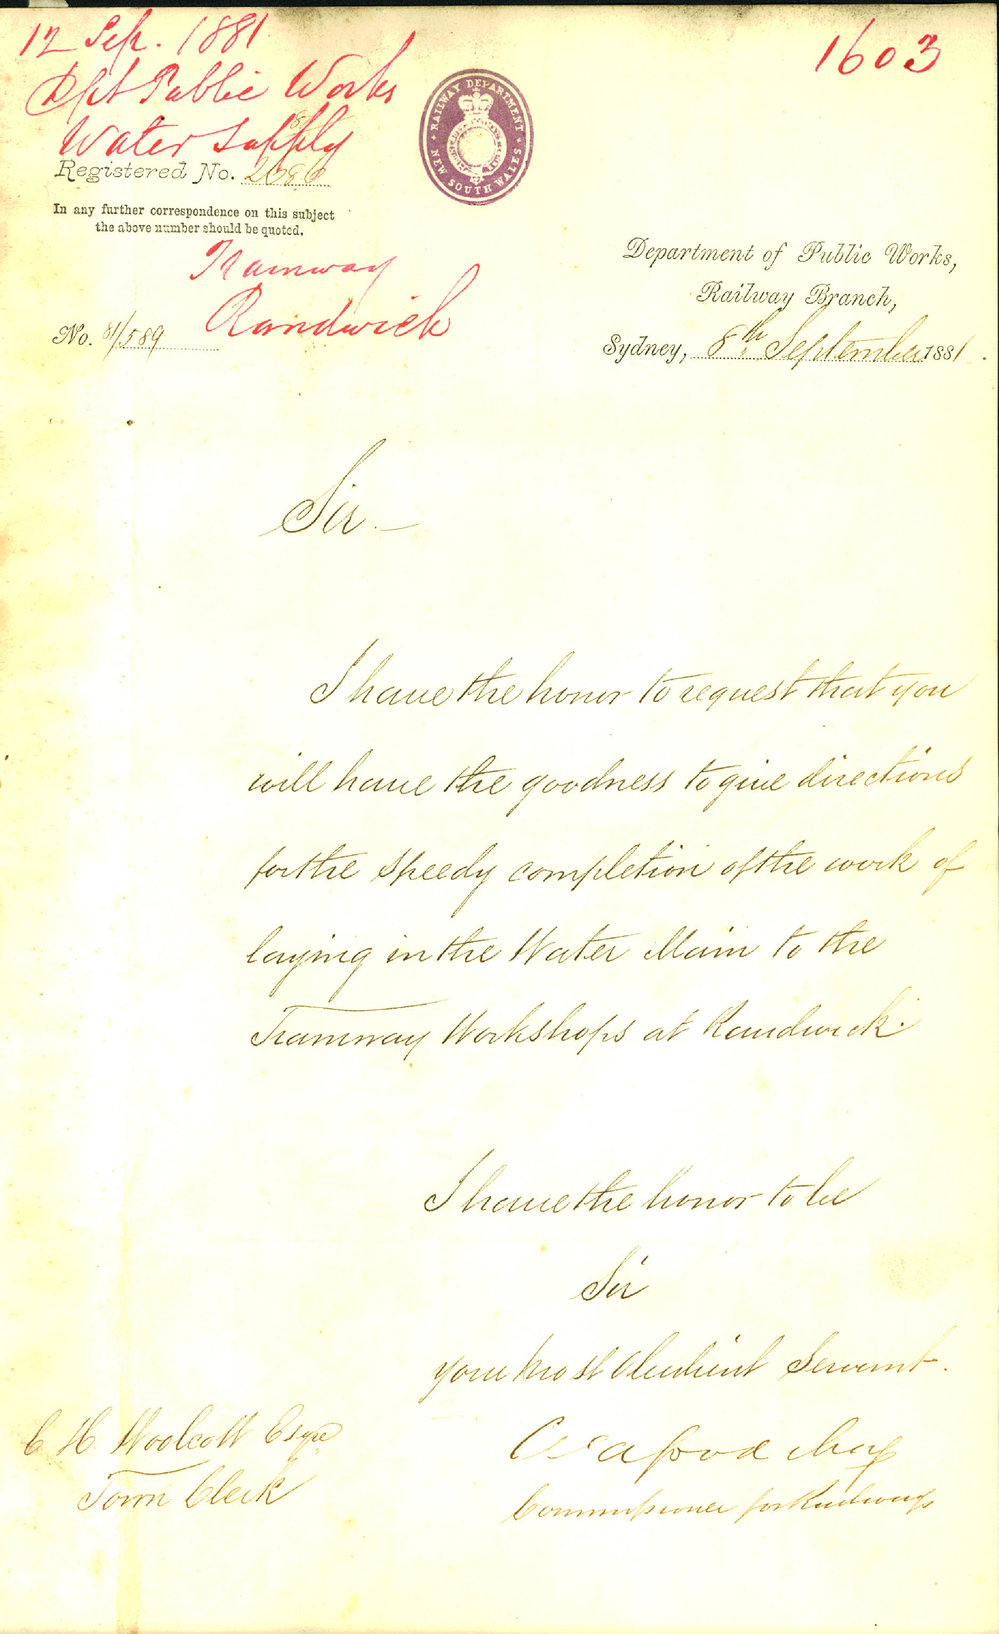 12 Sep. 1881
1603
Dpt Public Works
Water Supply
Registered No. 2686
In any further correspondence on this subject
the above number should be quoted.
RAILWAY DEPARTMENT
NEW SOUTH WALES
Tramway
Randwick
No. 81/589
Department of Public Works,
Railway Branch,
Sydney, 8th September 1881.
Sir
I have the honor to request that you
will have the goodness to give directions
for the speedy completion of the work of
laying in the Water Main to the
Tramway Workshops at Randwick.
I have the honor to be
Sir
your most obedient Servant.
C. H. Woolcott Esqre
Town Clerk
Commissioner for Railways